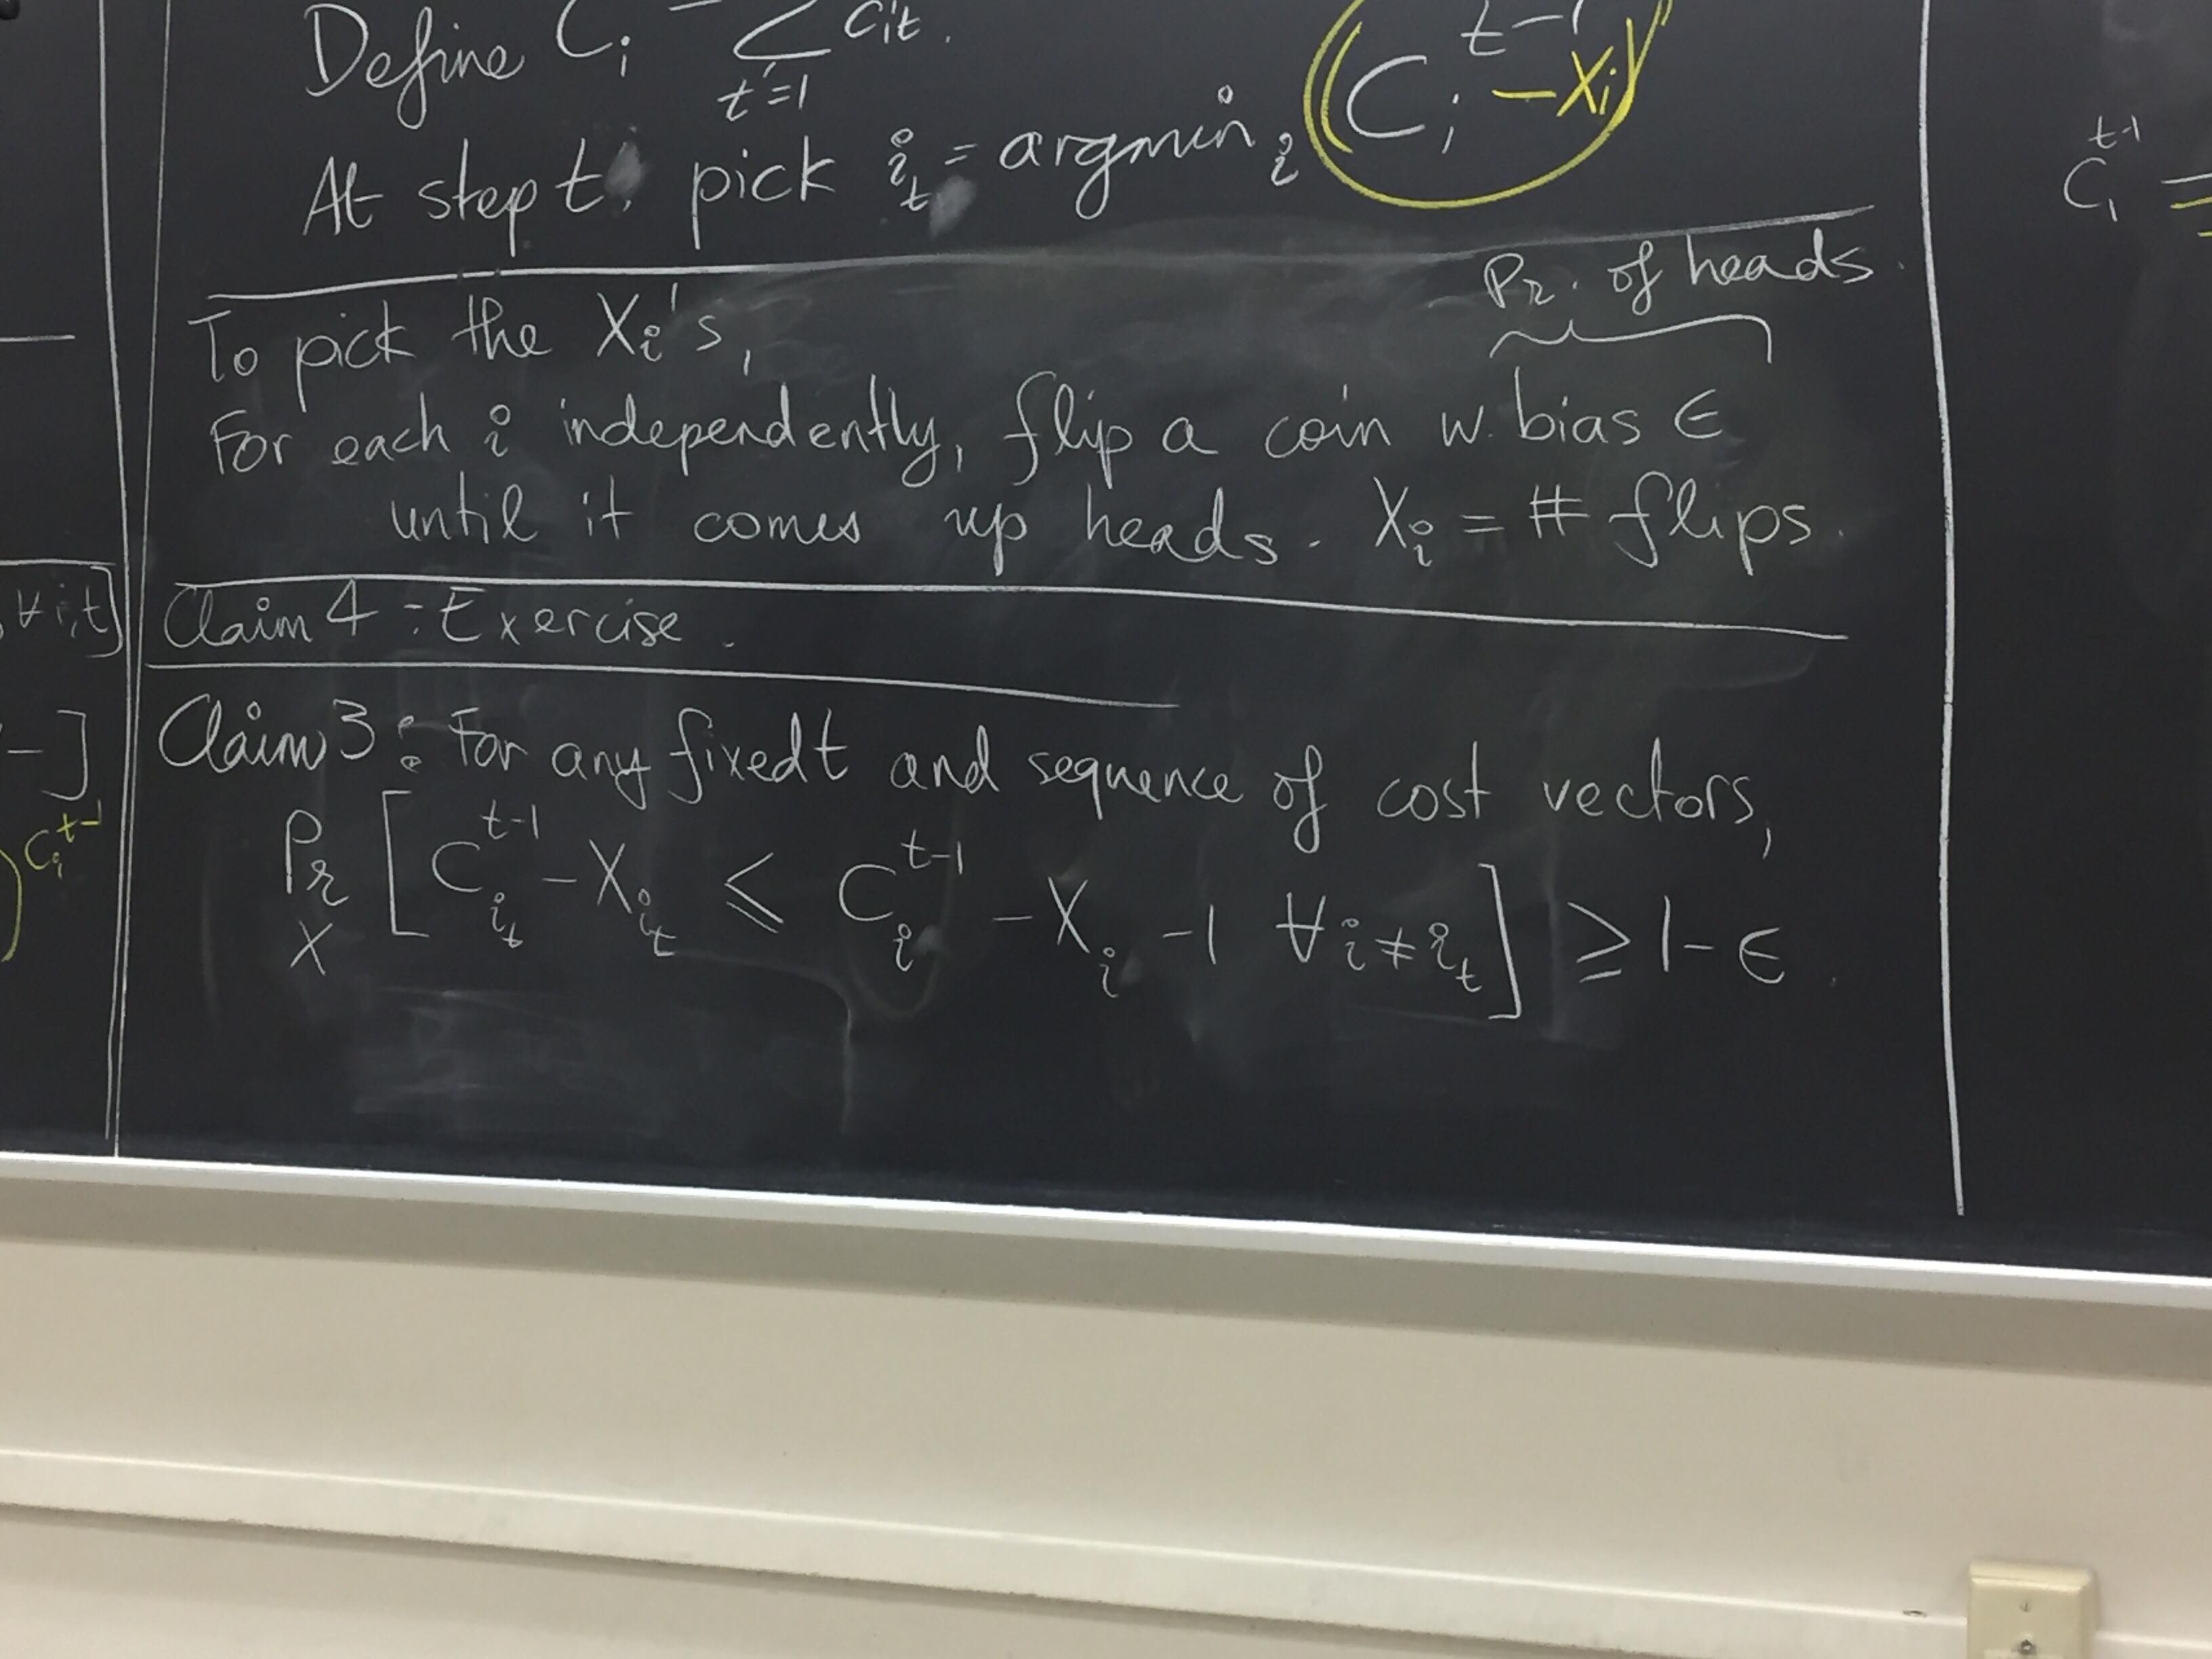 Define C_i = Σ_{t'=1} c_{it'}.
At step t, pick i_t = argmin_i (C_i^{t-1} - X_i)
Pr. of heads.
To pick the X_i's,
For each i independently, flip a coin w. bias ε
until it comes up heads. X_i = # flips.
Claim 4 : Exercise.
Claim 3 : For any fixed t and sequence of cost vectors,
Pr_X [ C_{i_t}^{t-1} - X_{i_t} ≤ C_i^{t-1} - X_i - 1 ∀ i ≠ i_t ] ≥ 1 - ε.
∀ i,t]
- ]
) C_i^{t-1}
C_1^{t-1} =